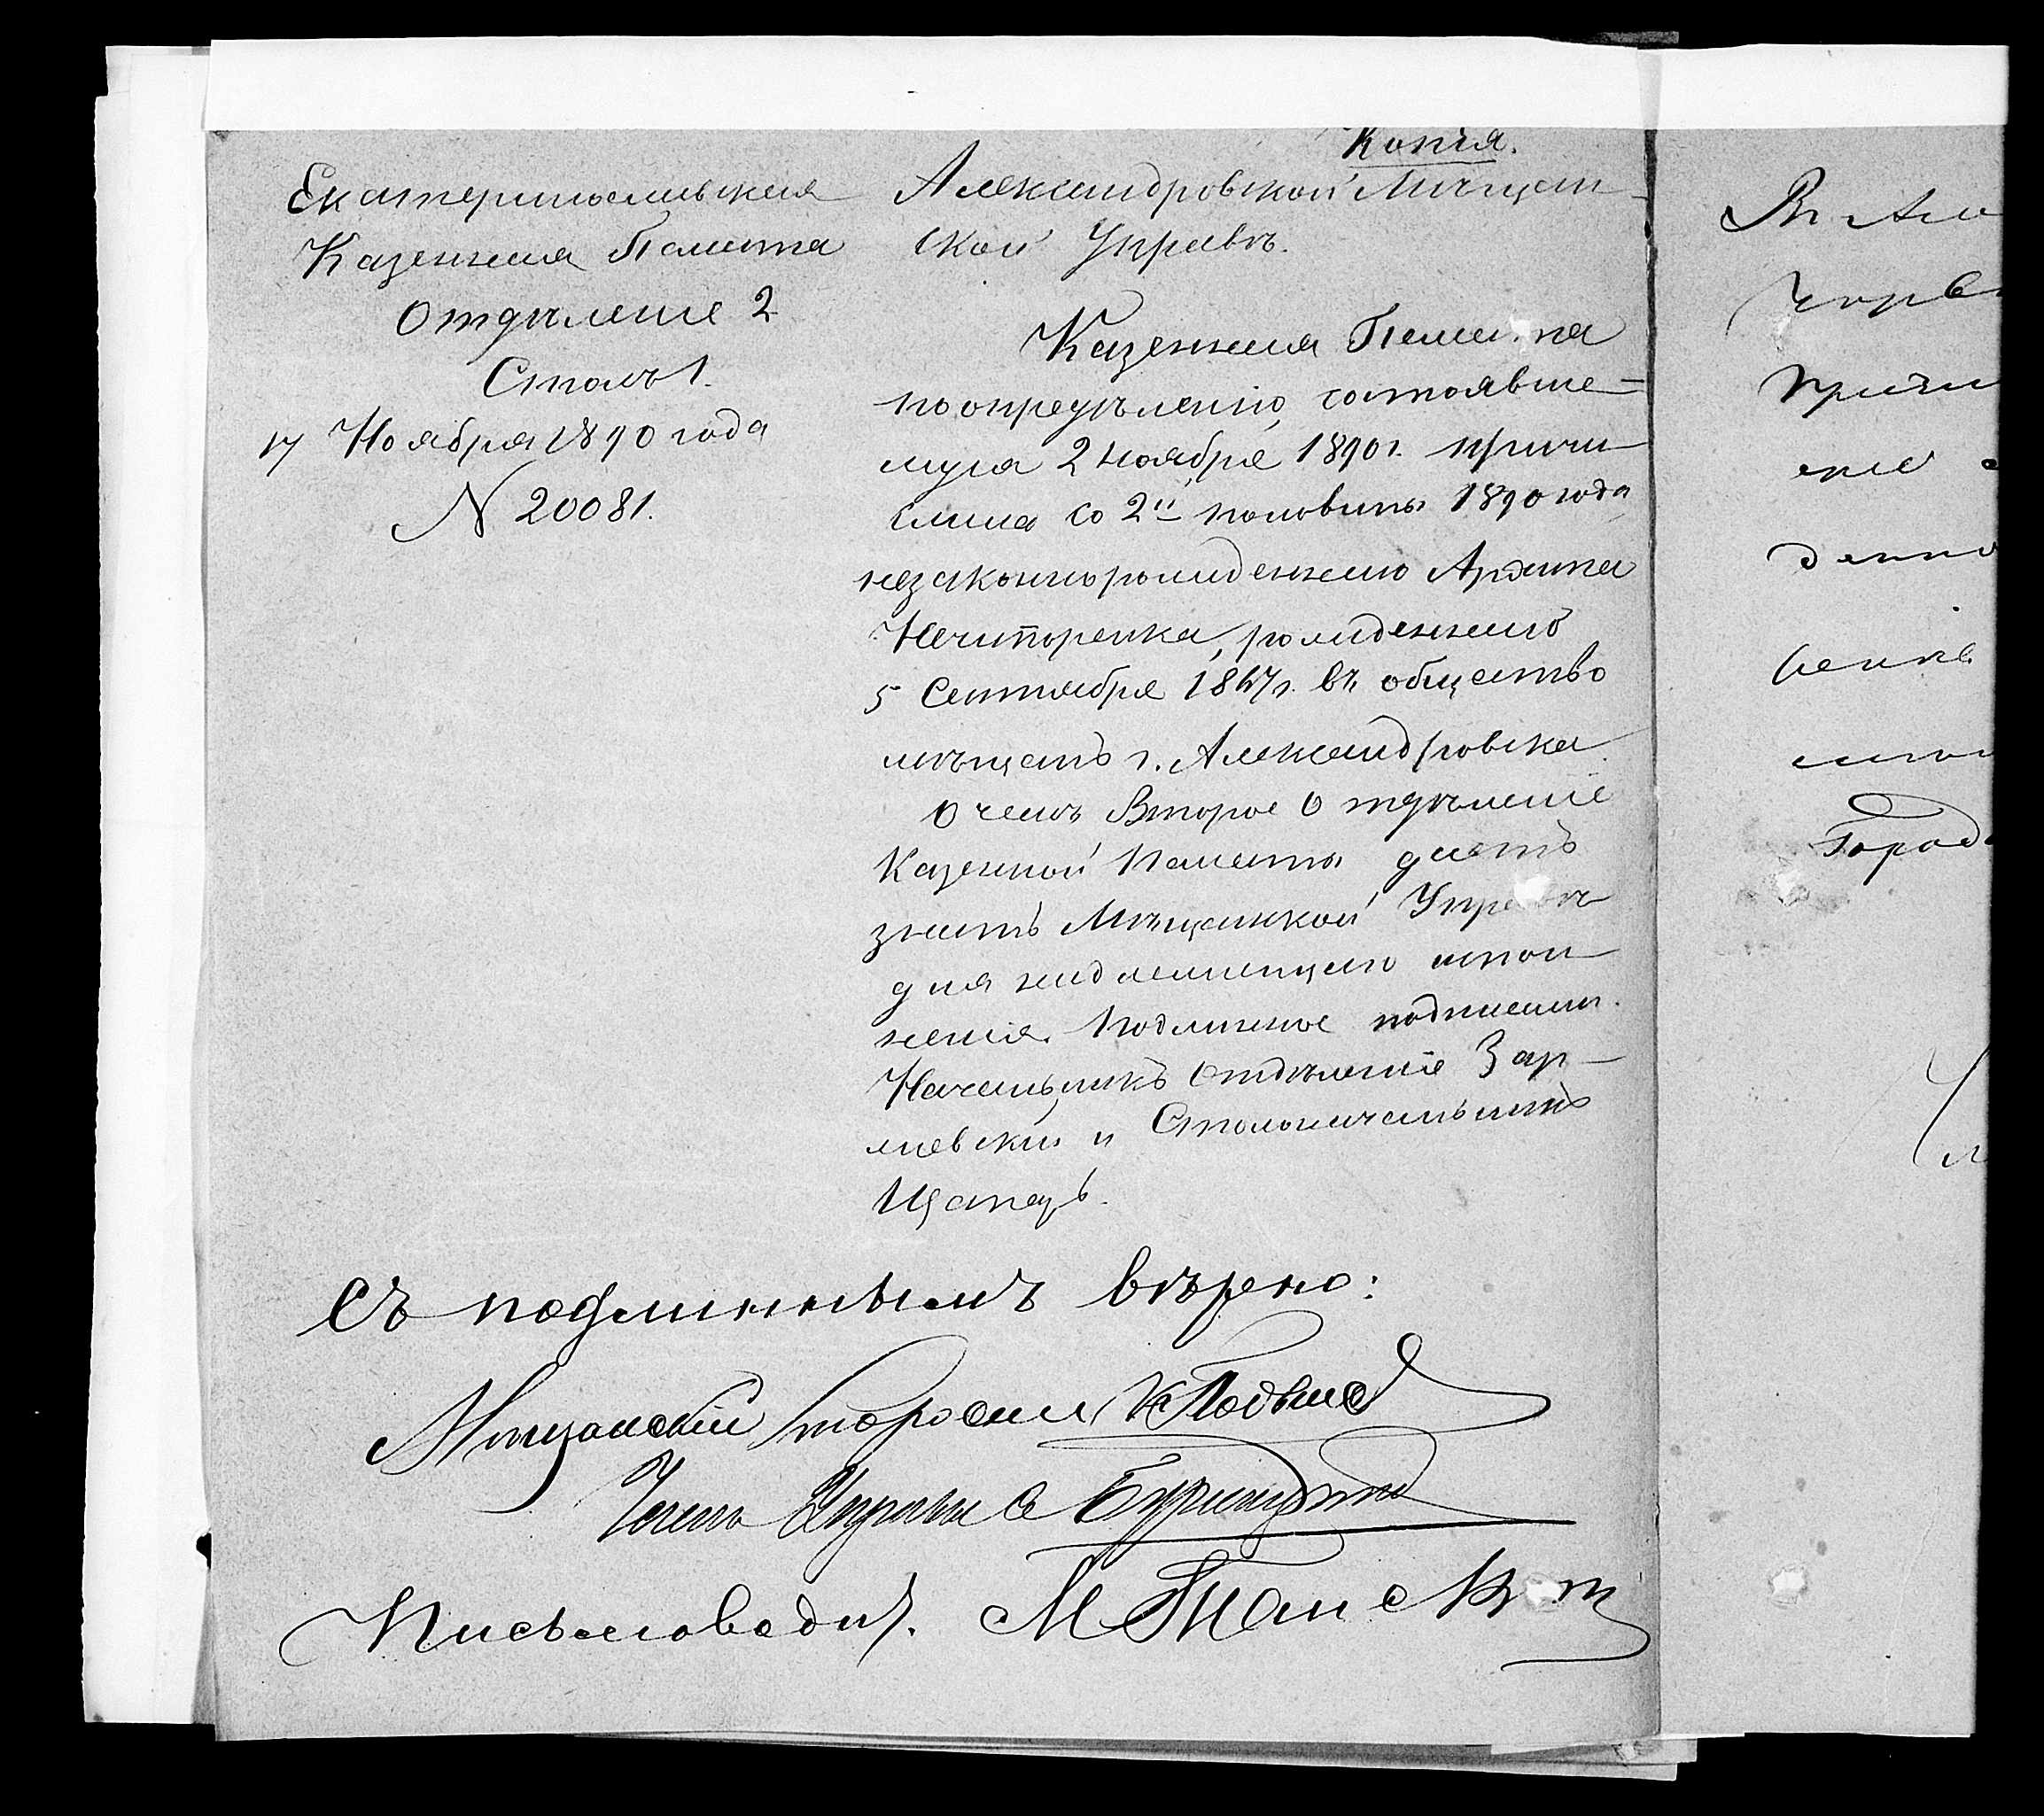 Копія.
Екатеринославская
Казенная Палата
Отдѣленіе 2
Столъ 1.
17 Ноября 1890 года
N 20081.
Александровской Мѣщан-
ской Управѣ.
Казенная Палата
по опредѣленію, состоявше-
муся 2 ноября 1890 г. причи-
слила со 2й половины 1890 года
незаконнорожденнаго Архипа
Нечипоренка, рожденнаго
5 Сентября 1867 г. въ общество
мѣщанъ г. Александровска.
О чемъ Второе Отдѣленіе
Казенной Палаты даетъ
знать Мѣщанской Управѣ
для надлежащаго испол-
ненія. Подлинное подписали.
Начальникъ Отдѣленія Зар-
и Столоначальникъ
Съ подлиннымъ вѣрно:
Мѣщанскій Староста
Членъ Управы
Письмовод.
В Але
Упра
Причи
ние
денно
Горо